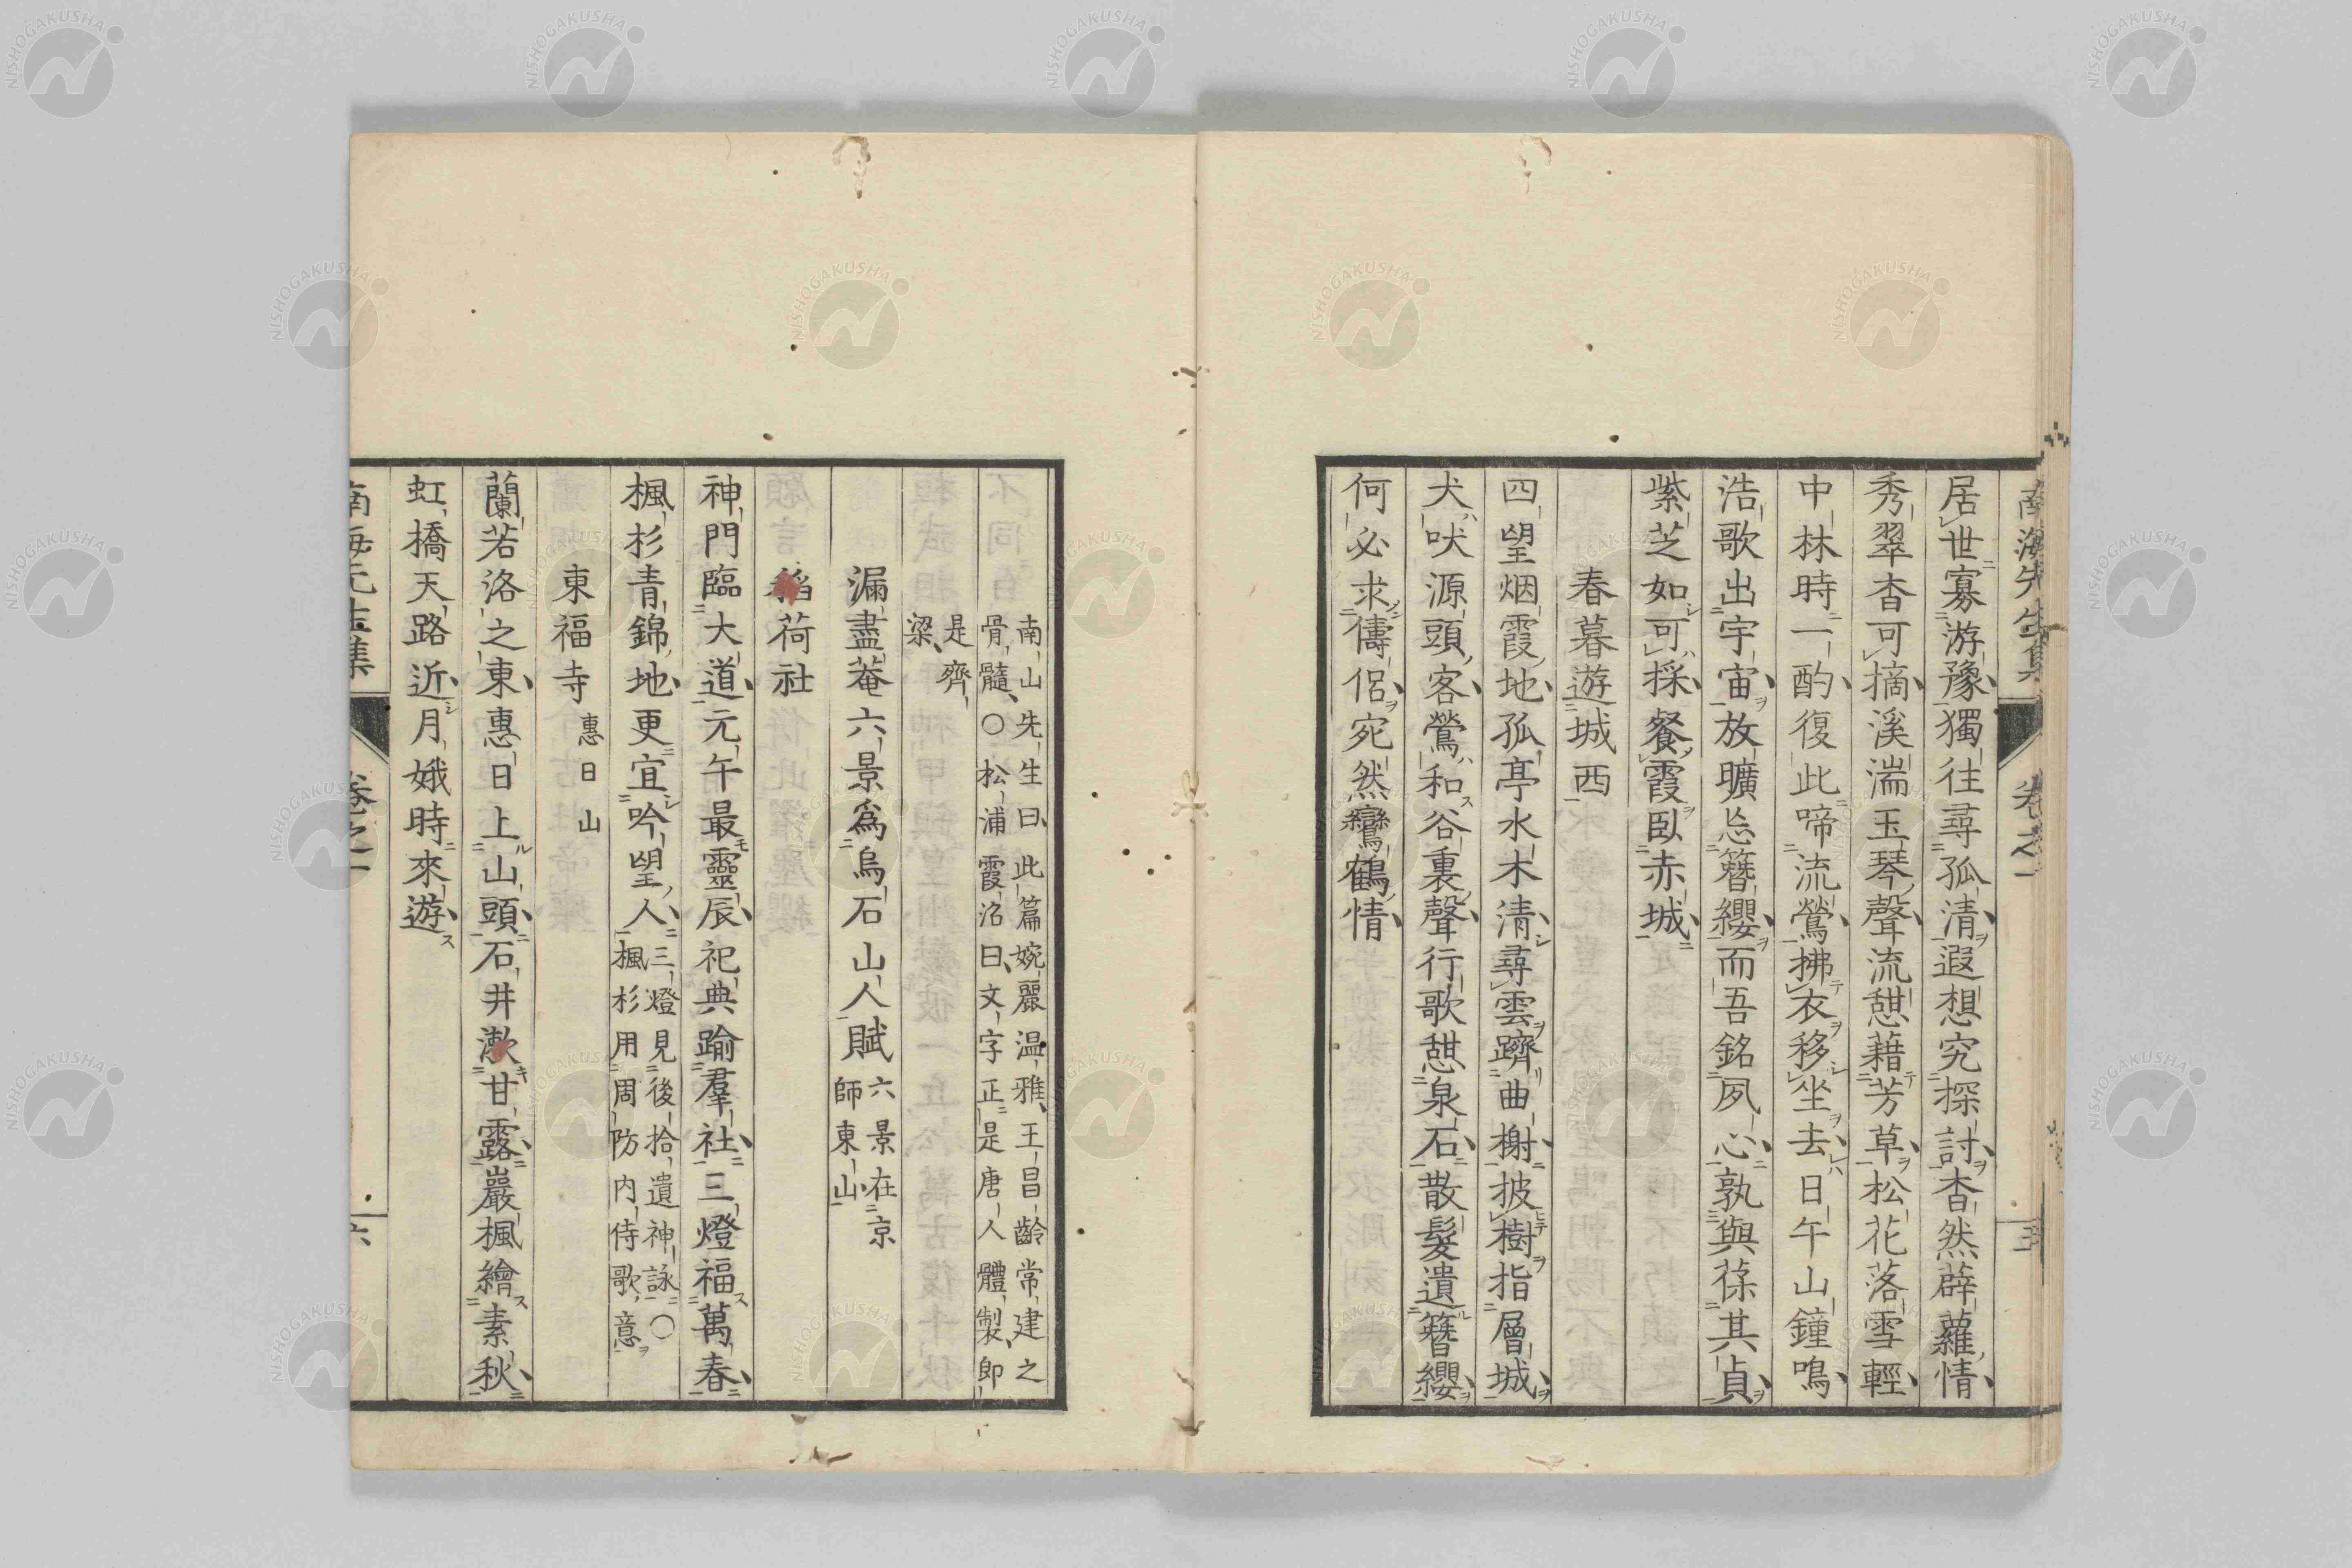 南海先生集 卷之一 五
居世寡游豫獨往尋孤清遐想究探討杳然薜蘿情
秀翠杳可摘溪湍玉琴聲流憇藉芳草松花落雪輕
中林時一酌復此啼流鶯拂衣移坐去日午山鐘鳴
浩歌出宇宙放曠忘簪纓而吾銘夙心孰與葆其貞
紫芝如可採餐霞臥赤城
春暮遊城西
四望烟霞地孤亭水木清尋雲躋曲榭披樹指層城
犬吠源頭客鶯和谷裏聲行歌憇泉石散髮遺簪纓
何必求儔侶宛然鸞鶴情
南山先生曰此篇婉麗温雅王昌齡常建之
骨髓〇松浦霞沼曰文字正是唐人體製卽
是齊
梁
漏盡菴六景爲烏石山人賦 六景在京
師東山
稻荷社
神門臨大道元午最靈辰祀典踰羣社三燈福萬春
楓杉青錦地更宜吟望人 三燈見後拾遺神詠〇
楓杉用周防内侍歌意
東福寺 惠日山
蘭若洛之東惠日上山頭石井漱甘露巖楓繪素秋
虹橋天路近月娥時來遊
南海先生集 卷之一 六
NISHOGAKUSHA